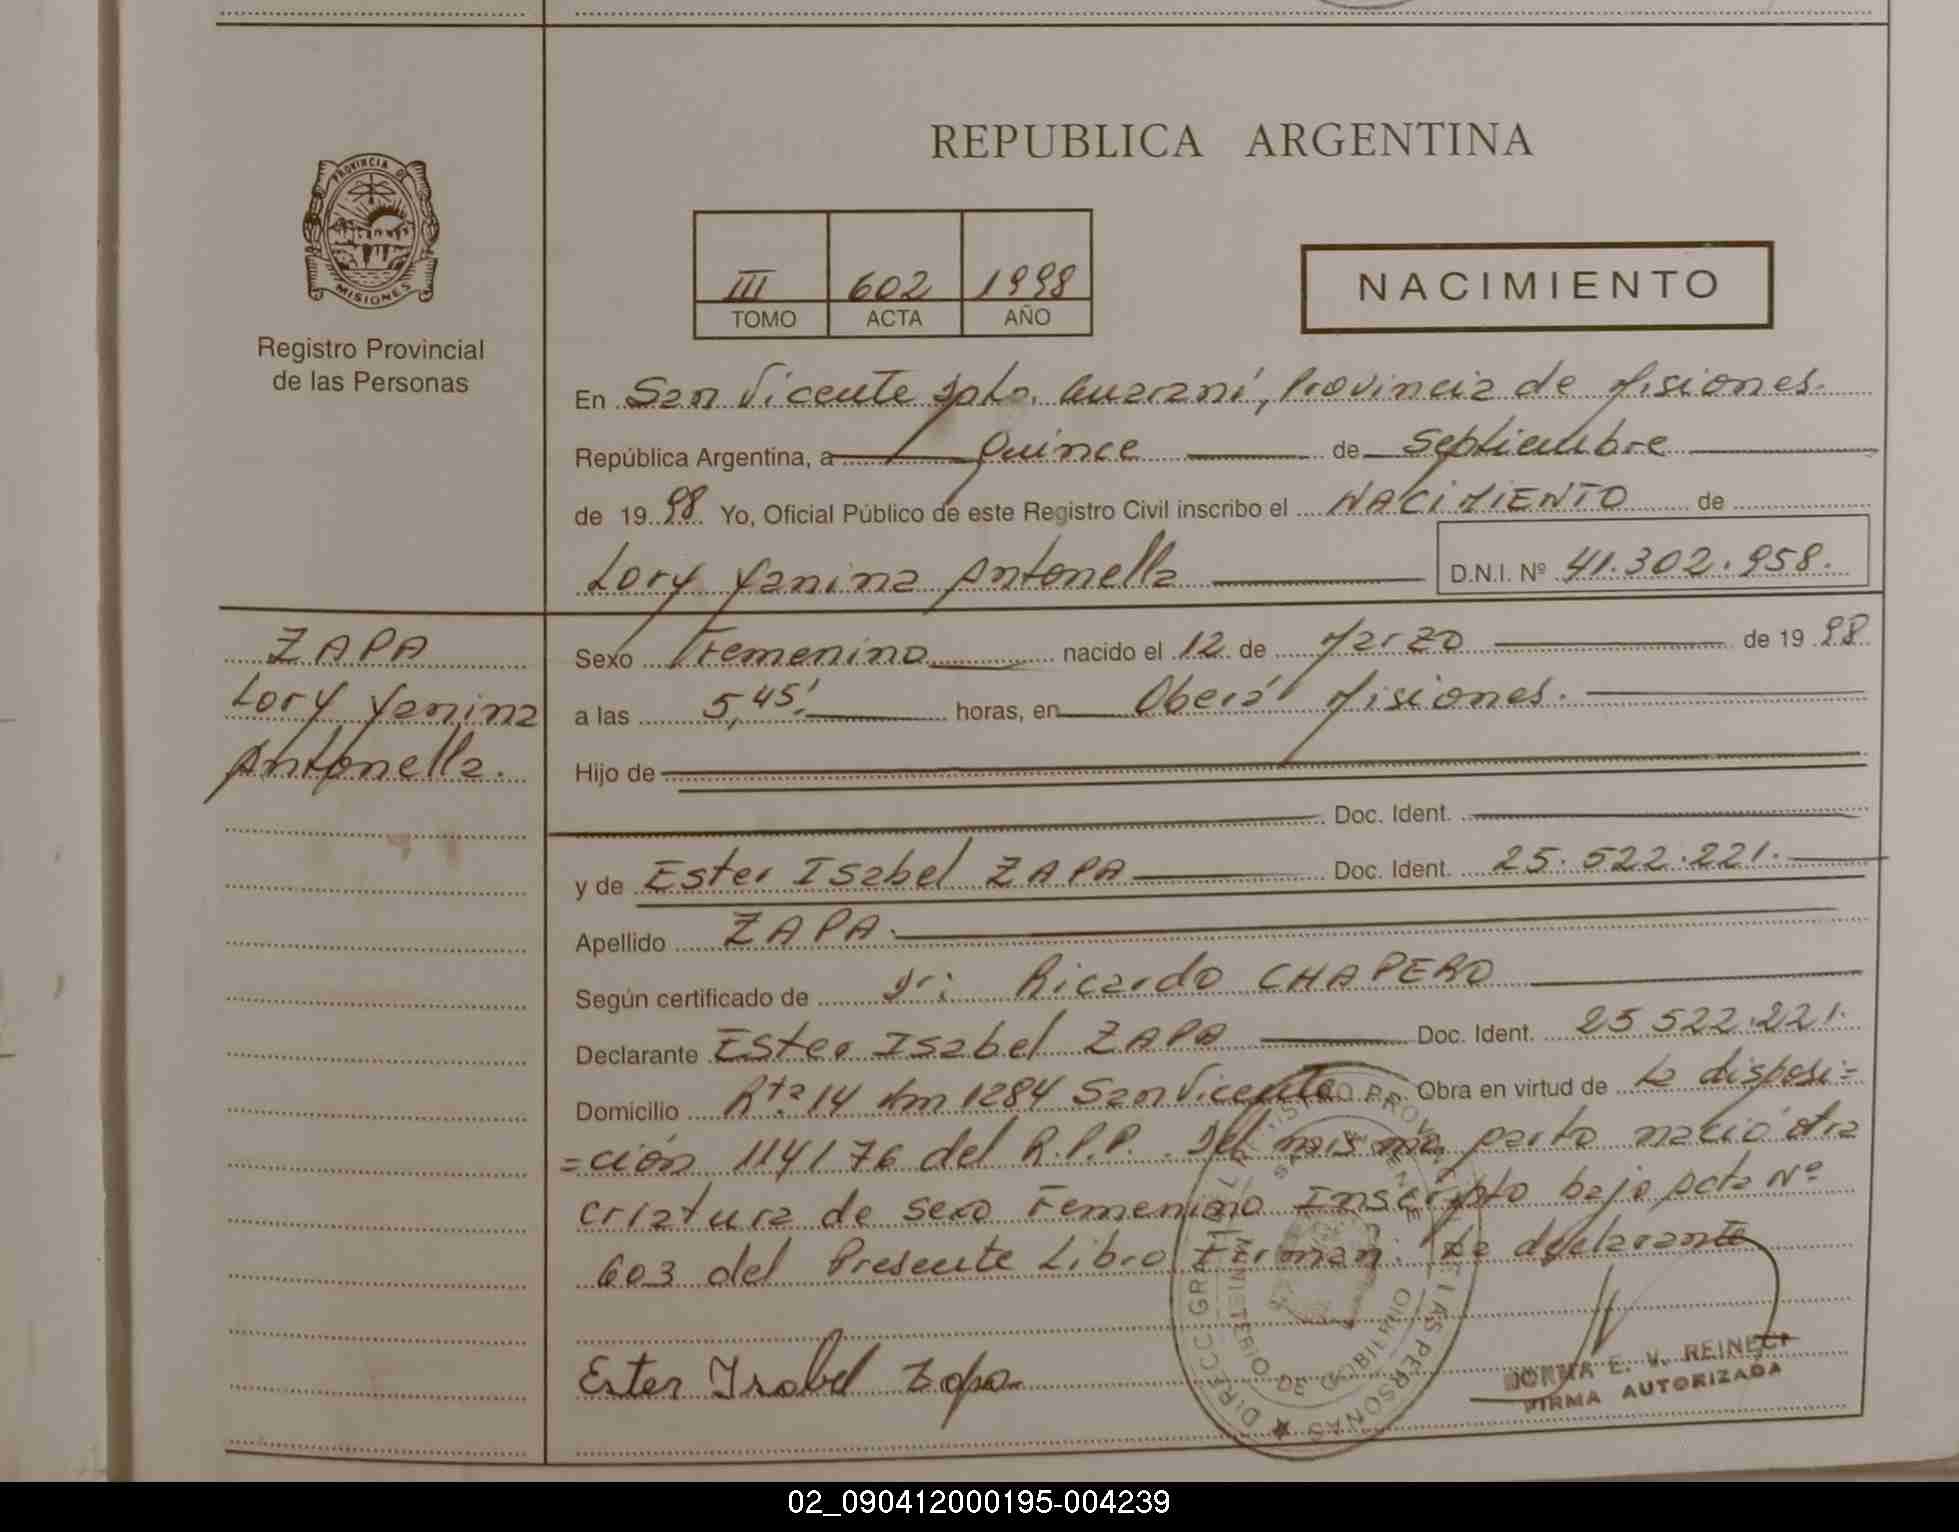 REPUBLICA ARGENTINA
PROVINCIA DE
MISIONES
Registro Provincial
de las Personas
III 602 1998
TOMO ACTA AÑO
NACIMIENTO
En San Vicente Dpto. Guaraní, Provincia de Misiones.
República Argentina, a Quince de Septiembre
de 1998 Yo, Oficial Público de este Registro Civil inscribo el NACIMIENTO de
Lory Yanina Antonella D.N.I. Nº 41.302.958.
ZAPA
Lory Yanina
Antonella.
Sexo Femenino nacido el 12 de Marzo de 1998
a las 5,45' horas, en Oberá Misiones.
Hijo de
Doc. Ident.
y de Ester Isabel ZAPA Doc. Ident. 25.522.221.
Apellido ZAPA.
Según certificado de Dr: Ricardo CHAPERO
Declarante Ester Isabel ZAPA Doc. Ident. 25522.221.
Domicilio Rta 14 Km 1284 San Vicente Obra en virtud de la disposi=
=ción 114/76 del R.P.P. Del mismo parto nació otra
criatura de sexo Femenino Inscripto bajo Acta Nº
603 del Presente Libro Firman: La declarante
Ester Isabel Zapa
E. V. REINECK
FIRMA AUTORIZADA
02_090412000195-004239